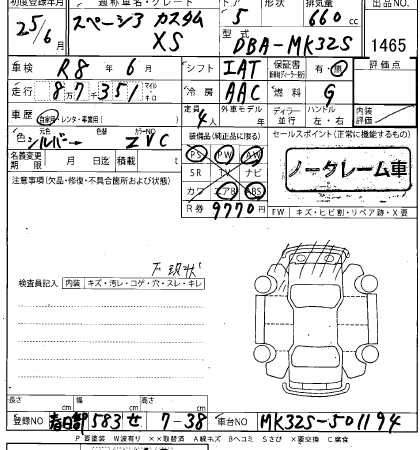 初度登録年月 通称車名・グレード ドア 形状 排気量 出品NO.
25/6月 スペーシア カスタム 5 660cc
XS 型式 DBA-MK32S 1465
車検 R8年6月 シフト IAT 保証書 有・無 評価点
走行 87,351 マイル キロ 冷房 AAC 燃料 G
車歴 自家用・レンタ・事業用( ) 定員 4人 外車モデル 年 ディーラー 並行 ハンドル 左・右 内装評価
色 元色 シルバー 色替 カラーNO ZVC 装備品(純正品に限る) セールスポイント(正常に機能するもの)
名義変更期限 月 日迄 積載 t PS PW AW
SR TV ナビ ノークレーム車
注意事項(欠品・修復・不具合箇所および状態) カワ エアB ABS
R券 9770円 FW キズ・ヒビ割・リペア跡・X要
下 現状
検査員記入 内装 キズ・汚レ・コゲ・穴・スレ・キレ
長さ cm 幅 cm 高さ cm
登録NO 春日部 583 せ 7-38 車台NO MK32S-501194
P要塗装 W波有り ××取替済 A線キズ Bヘコミ Sさび ×要交換 C腐食